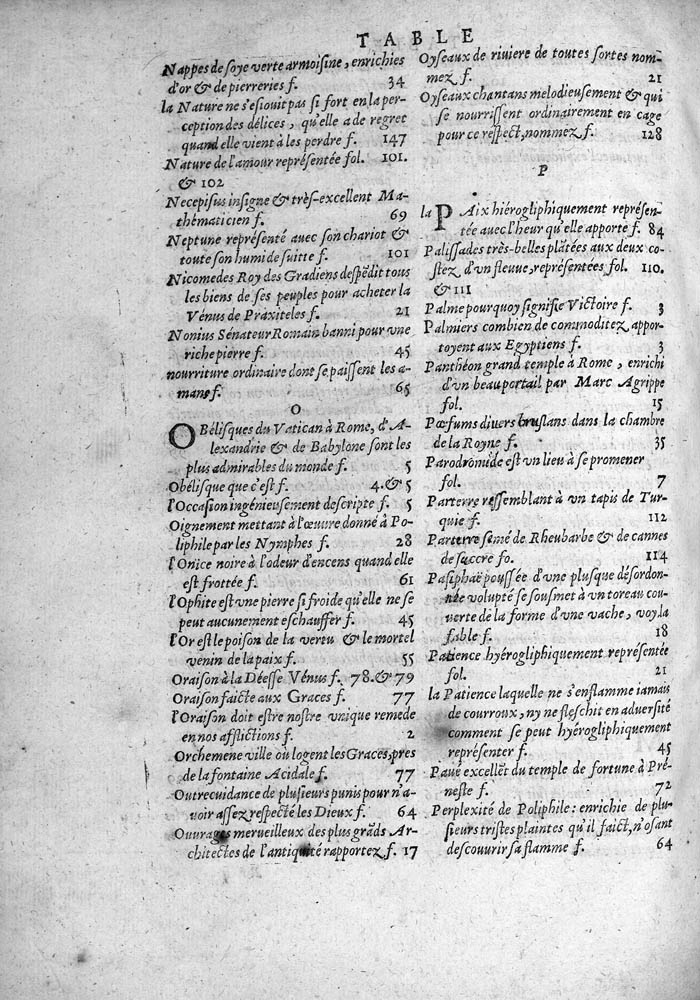 TABLE
Nappes de soye verte armoisine, enrichies
d'or & de pierreries f. 34
la Nature ne s'esiouit pas si fort en la per-
ception des délices, qu'elle a de regret
quand elle vient à les perdre f. 147
Nature de l'amour représentée fol. 101.
& 102
Necepisus insigne & très-excellent Ma-
thématicien f. 69
Neptune représenté avec son chariot &
toute son humide suitte f. 101
Nicomedes Roy des Gradiens despēdit tous
les biens de ses peuples pour acheter la
Vénus de Praxiteles f. 21
Nonius Sénateur Romain banni pour vne
riche pierre f. 45
nourriture ordinaire dont se paissent les a-
mans f. 65
O
OBélisques du Vatican à Rome, d'A-
lexandrie & de Babylone sont les
plus admirables du monde f. 5
Obélisque que c'est f. 4. & 5
l'Occasion ingénieusement descripte f. 5
Oignement mettant à l'œuure donné à Po-
liphile par les Nymphes f. 28
l'Onice noire à l'odeur d'encens quand elle
est frottée f. 61
l'Ophite est vne pierre si froide qu'elle ne se
peut aucunement eschauffer f. 45
l'Or est le poison de la vertu & le mortel
venin de la paix f. 55
Oraison à la Déesse Vénus f. 78. & 79
Oraison faicte aux Graces f. 77
l'Oraison doit estre nostre vnique remede
en nos afflictions f. 2
Orchemene ville où logent les Graces, pres
de la fontaine Acidale f. 77
Outrecuidance de plusieurs punis pour n'a-
voir assez respecté les Dieux f. 64
Ouvrages merveilleux des plus grāds Ar-
chitectes de l'antiquité rapportez f. 17
Oyseaux de riviere de toutes sortes nom-
mez f. 21
Oyseaux chantans melodieusement & qui
se nourrissent ordinairement en cage
pour ce respect, nommez f. 128
P
la PAix hiérogliphiquement représen-
tée avec l'heur qu'elle apporte f. 84
Palissades très-belles plātées aux deux co-
stez d'vn fleuue, représentées fol. 110.
& 111
Palme pourquoy signifie Victoire f. 3
Palmiers combien de commoditez appor-
toyent aux Egyptiens f. 3
Panthéon grand temple à Rome, enrichi
d'vn beau portail par Marc Agrippe
fol. 15
Pœfums divers bruslans dans la chambre
de la Royne f. 35
Parodromide est vn lieu à se promener
fol. 7
Parterre ressemblant à vn tapis de Tur-
quie f. 112
Parterre semé de Rheubarbe & de cannes
de succre fo. 114
Pasiphaë poussée d'vne plusque désordon-
née volupté se sousmet à vn toreau cou-
verte de la forme d'vne vache, voy la
fable f. 18
Patience hyérogliphiquement représentée
fol. 21
la Patience laquelle ne s'enflamme iamais
de courroux, ny ne fleschit en adversité
comment se peut hyérogliphiquement
représenter f. 45
Pavé excellēt du temple de fortune à Pré-
neste f. 72
Perplexité de Poliphile: enrichie de plu-
sieurs tristes plaintes qu'il faict, n'osant
descouvrir sa flamme f. 64